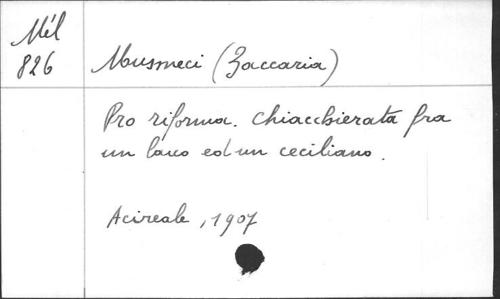 Mél
826
Musmeci (Zaccaria)
Pro riforma. Chiacchierata fra
un laico ed un ceciliano.
Acireale, 1907